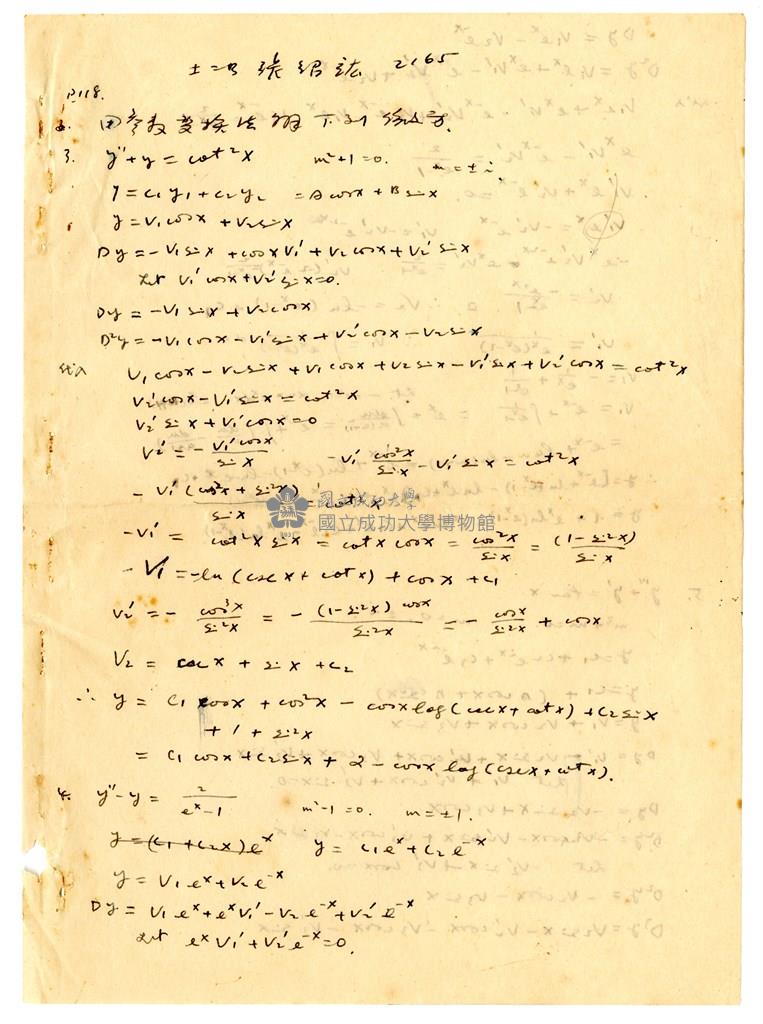 土二乃 張紹誌 2165
P118.
2. 用參數變換法解下列微分方.
3. y''+y = cot²x m²+1=0. m=±i
y = c₁y₁+c₂y₂ = A cosx + B sinx
y = V₁ cosx + V₂ sinx
Dy = -V₁ sinx + cosx V₁' + V₂ cosx + V₂' sinx
Let V₁' cosx + V₂' sinx = 0.
Dy = -V₁ sinx + V₂ cosx
D²y = -V₁ cosx - V₁' sinx + V₂' cosx - V₂ sinx
V₁ cosx - V₂ sinx + V₁ cosx + V₂ sinx - V₁' sinx + V₂' cosx = cot²x
V₂' cosx - V₁' sinx = cot²x
V₂' sinx + V₁' cosx = 0
V₂' = - V₁' cosx / sinx - V₁' cos²x / sinx - V₁' sinx = cot²x
- V₁' (cos²x + sin²x) / sinx = cot²x
國立成功大學
國立成功大學博物館
-V₁' = cot²x sinx = cotx cosx = cos²x / sinx = (1-sin²x) / sinx
-V₁ = -ln (cscx + cotx) + cosx + c₁
V₂' = - cos³x / sin²x = - (1-sin²x) cosx / sin²x = - cosx / sin²x + cosx
V₂ = cscx + sinx + c₂
∴ y = c₁ cosx + cos²x - cosx log (cscx + cotx) + c₂ sinx
+ 1 + sin²x
= c₁ cosx + c₂ sinx + 2 - cosx log (cscx + cotx).
4. y''-y = 2 / eˣ-1 m²-1=0. m=±1.
y=(c₁+c₂x)eˣ y = c₁eˣ + c₂e⁻ˣ
y = V₁eˣ + V₂e⁻ˣ
Dy = V₁eˣ + eˣV₁' - V₂e⁻ˣ + V₂'e⁻ˣ
Let eˣV₁' + V₂'e⁻ˣ = 0.